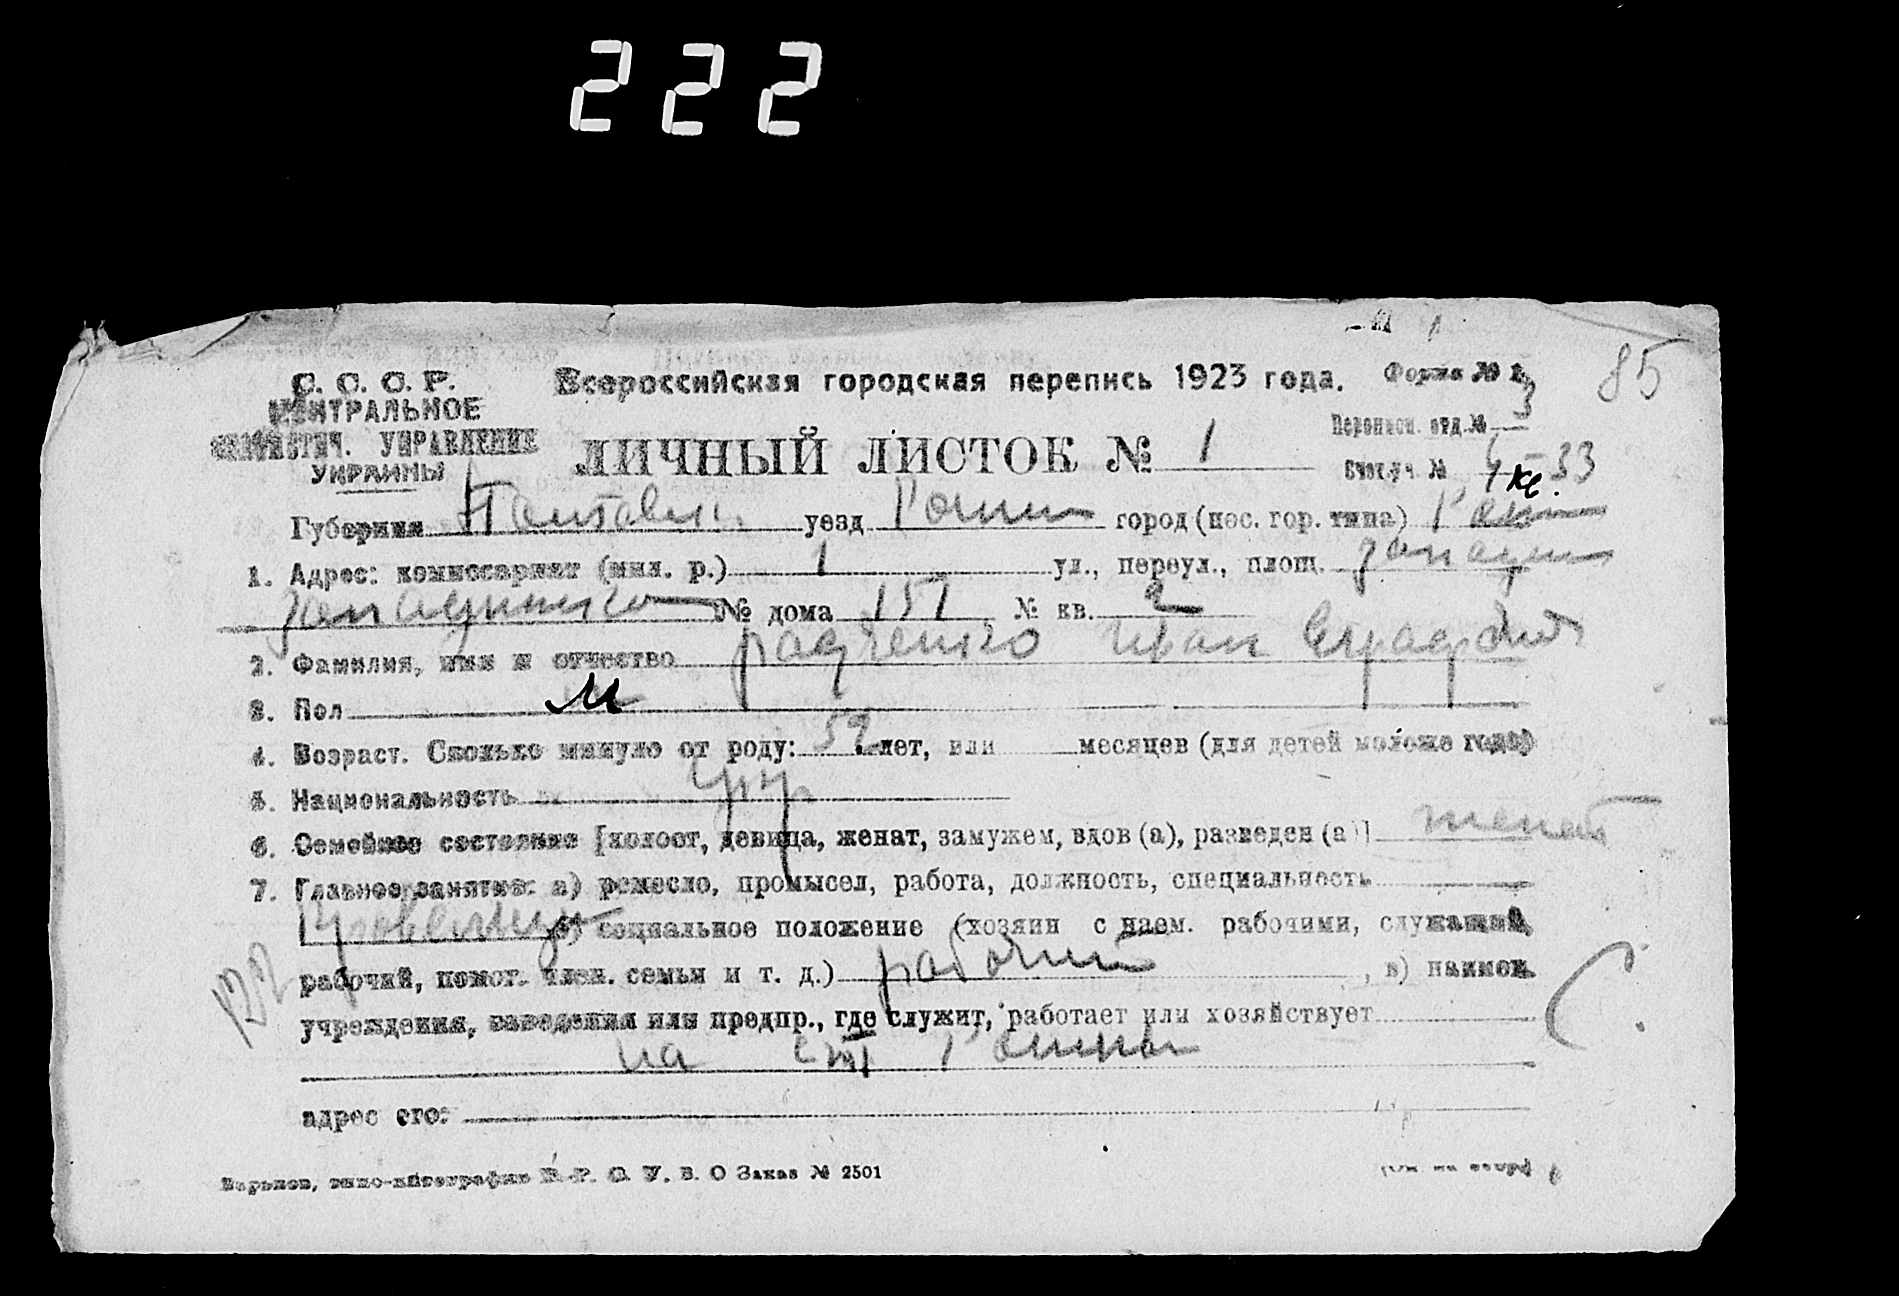 222
85
С. С. С. Р.
ЦЕНТРАЛЬНОЕ
СТАТИСТИЧ. УПРАВЛЕНИЕ
УКРАИНЫ
Всероссийская городская перепись 1923 года.
Форма № 3
ЛИЧНЫЙ ЛИСТОК № 1
Переписн. отд. №
Счетн. уч. № 33
Губерния Полтавск. уезд Ромны город (пос. гор. типа) Ромны
1. Адрес: комиссариат (мил. р.) 1 ул., переул., площ.
№ дома 151 № кв. 2
2. Фамилия, имя и отчество Радченко Иван
3. Пол м
4. Возраст. Сколько минуло от роду: 52 лет, или месяцев (для детей моложе года)
5. Национальность укр
6. Семейное состояние [холост, девица, женат, замужем, вдов (а), разведен (а)] женат
7. Главное занятие: а) ремесло, промысел, работа, должность, специальность
б) социальное положение (хозяин с наем. рабочими, служащий,
рабочий, помог. член. семьи и т. д.) рабочий , в) наимен.
учреждения, заведения или предпр., где служит, работает или хозяйствует
на ст Ромны
адрес его:
Харьков, типо-литография У. В. О Заказ № 2501